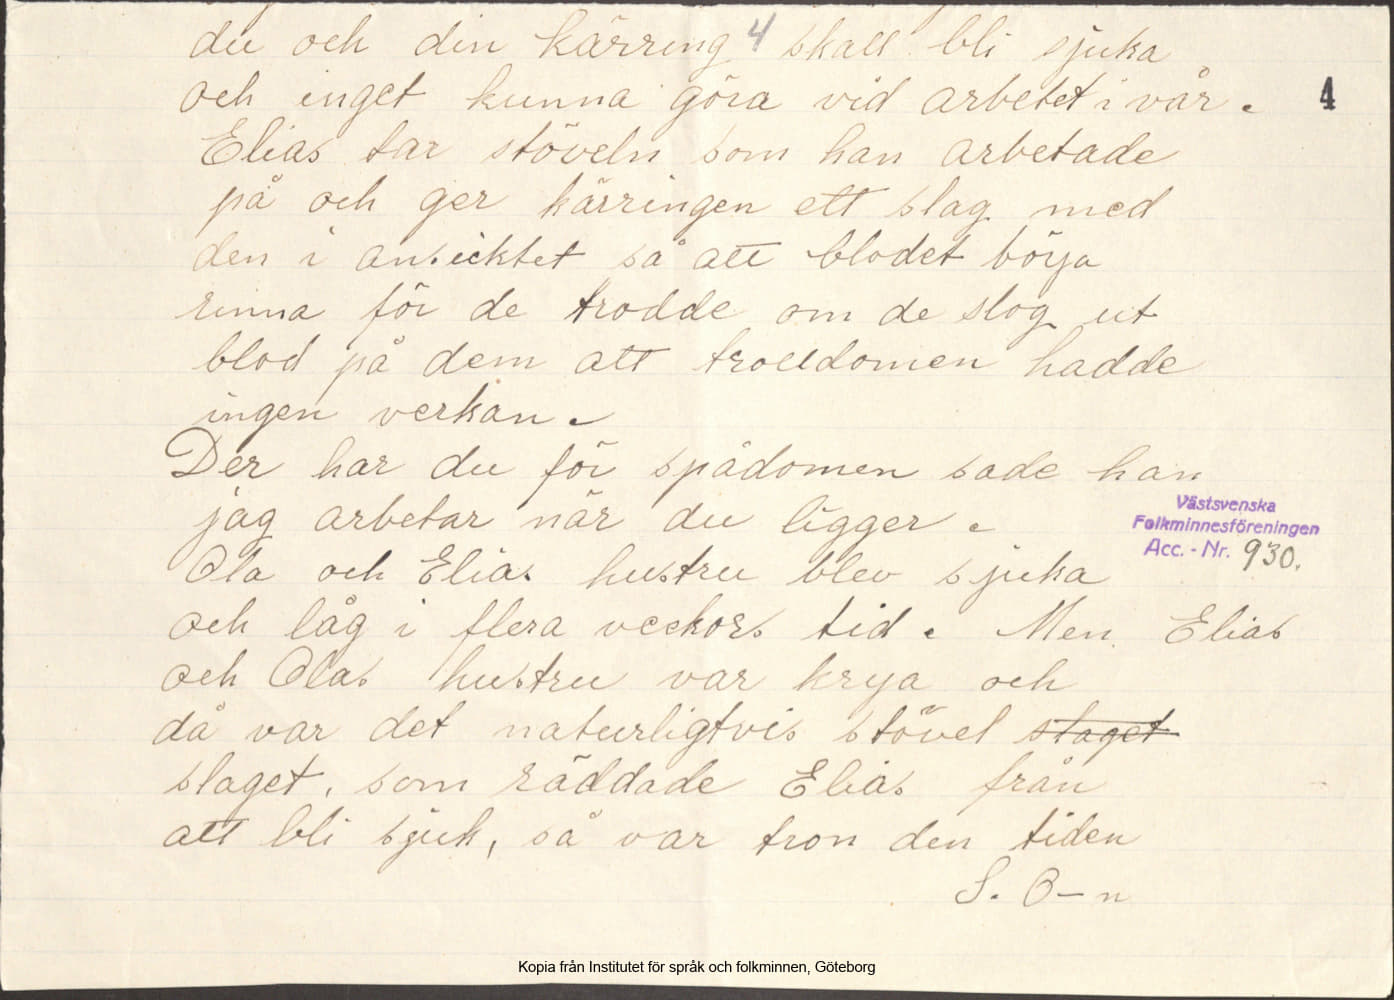 du och din kärring 4 skall bli sjuka
och inget kunna göra vid arbetet i vår.
4
Elias tar stöveln som han arbetade
på och ger kärringen ett slag med
den i ansicktet så att blodet börja
rinna för de trodde om de slog ut
blod på dem att trolldomen hadde
ingen verkan.
Der har du för spådomen sade han
jag arbetar när du ligger.
Västsvenska
Folkminnesföreningen
Acc. - Nr. 930.
Ola och Elias hustru blev sjuka
och låg i flera veckors tid. Men Elias
och Olas hustru var krya och
då var det naturligtvis stövel staget
slaget, som räddade Elias från
att bli sjuk, så var tron den tiden
S. O-n
Kopia från Institutet för språk och folkminnen, Göteborg